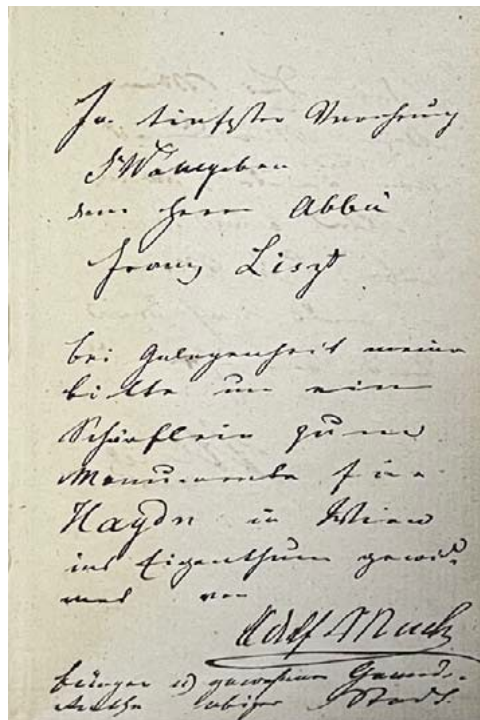 In tiefster Verehrung
dem Herrn Abbé
Franz Liszt
bei Gelegenheit meiner
bitte um ein
Schärflein zum
Monumente für
Haydn in Wien
ins Eigenthum gewid
met von
Adolf Muck
bürger gewesener Gemeinde-